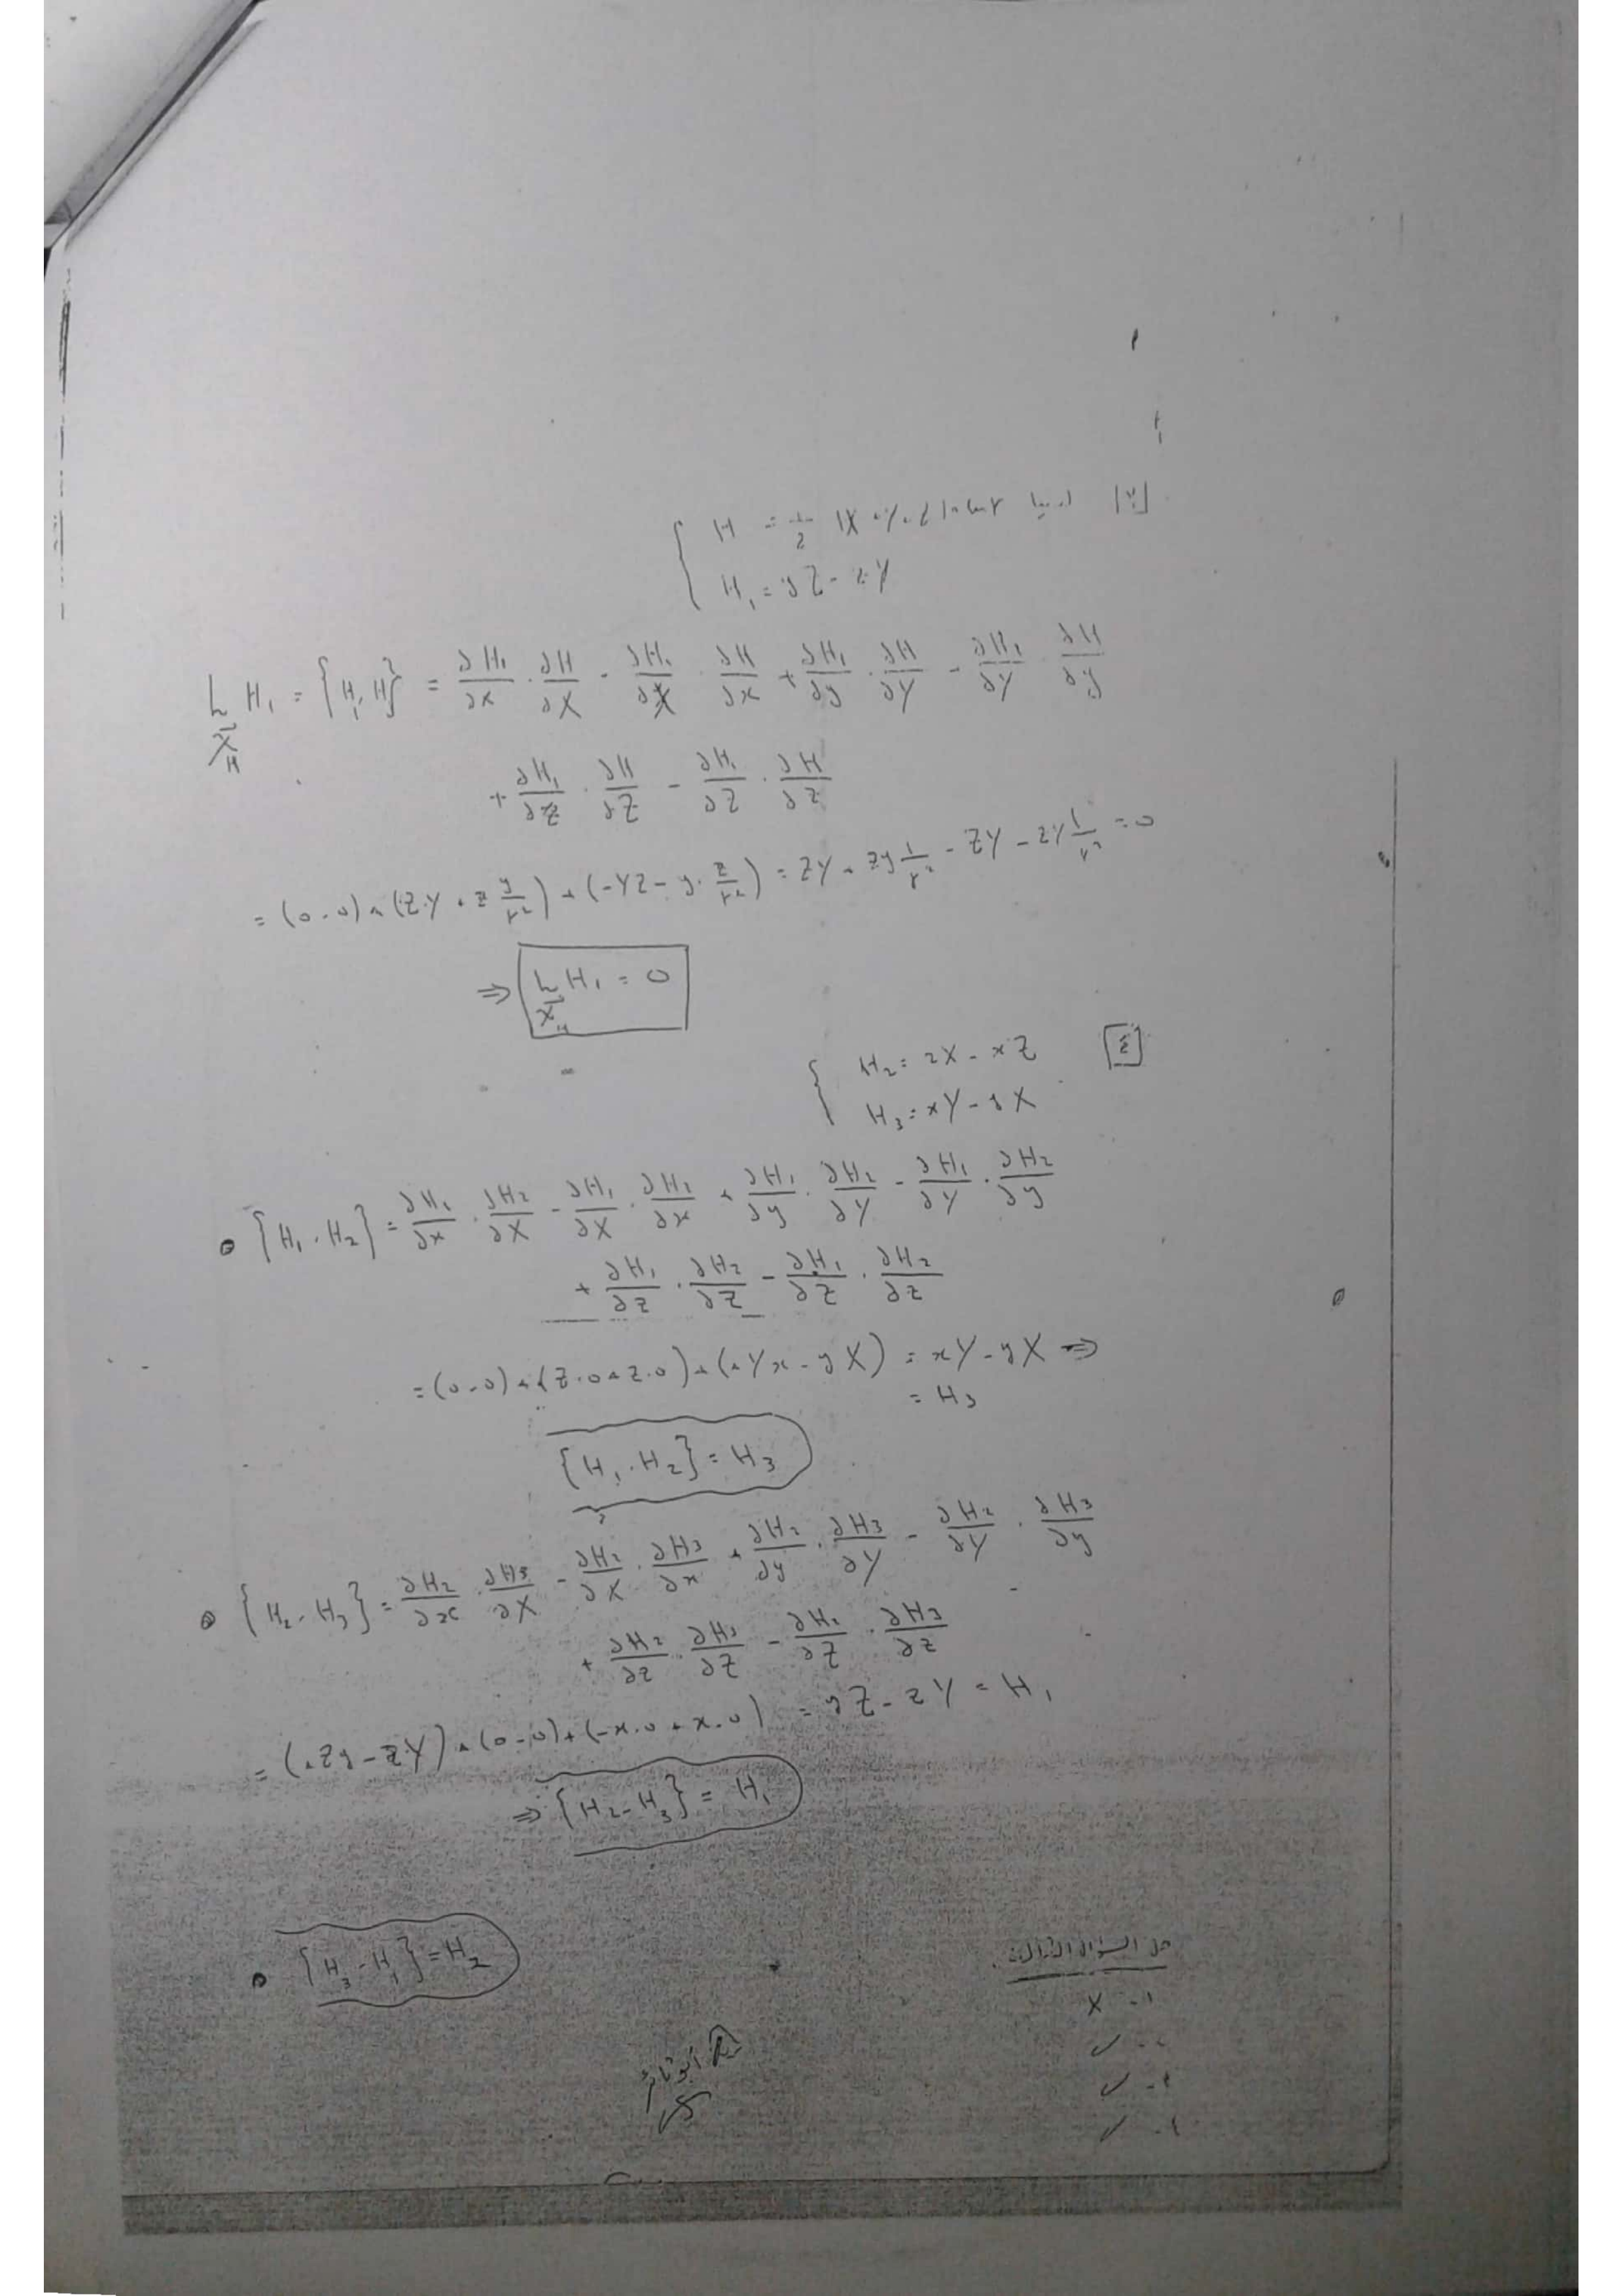 [٣] لدينا H = 1/2 (X² + Y² + Z²) + ln r
H₁ = yZ - zY
L_X̄_H H₁ = {H₁, H} = ∂H₁/∂x · ∂H/∂X - ∂H₁/∂X · ∂H/∂x + ∂H₁/∂y · ∂H/∂Y - ∂H₁/∂Y · ∂H/∂y
+ ∂H₁/∂z · ∂H/∂Z - ∂H₁/∂Z · ∂H/∂z
= (0-0) + (Z·Y + z y/r²) + (-YZ - y · z/r²) = ZY + zy 1/r² - ZY - zy 1/r² = 0
⇒ L_X̄_H H₁ = 0
[٤] H₂ = zX - xZ
H₃ = xY - yX
• {H₁, H₂} = ∂H₁/∂x · ∂H₂/∂X - ∂H₁/∂X · ∂H₂/∂x + ∂H₁/∂y · ∂H₂/∂Y - ∂H₁/∂Y · ∂H₂/∂y
+ ∂H₁/∂z · ∂H₂/∂Z - ∂H₁/∂Z · ∂H₂/∂z
= (0-0) + (Z·0 + z·0) + (+Yx - yX) = xY - yX ⇒
= H₃
{H₁, H₂} = H₃
• {H₂, H₃} = ∂H₂/∂x · ∂H₃/∂X - ∂H₂/∂X · ∂H₃/∂x + ∂H₂/∂y · ∂H₃/∂Y - ∂H₂/∂Y · ∂H₃/∂y
+ ∂H₂/∂z · ∂H₃/∂Z - ∂H₂/∂Z · ∂H₃/∂z
= (+Zy - z·Y) + (0-0) + (-x·0 + x·0) = yZ - zY = H₁
⇒ {H₂, H₃} = H₁
• {H₃, H₁} = H₂
حل السؤال الثالث:
١- X
٢- ✓
٣- ✓
٤- ✓
أبو ثائر